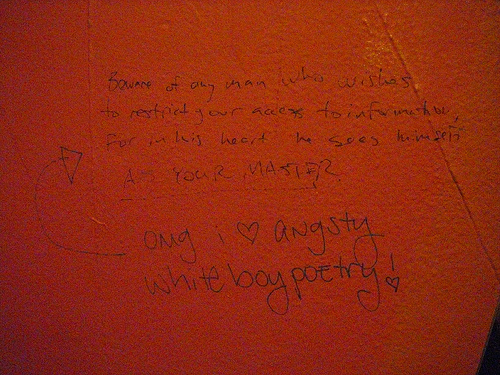 Beware of any man who wishes
to restrict your access to information,
For in his heart he sees himself
AS YOUR MASTER.
omg i ♡ angsty
white boy poetry! ♡